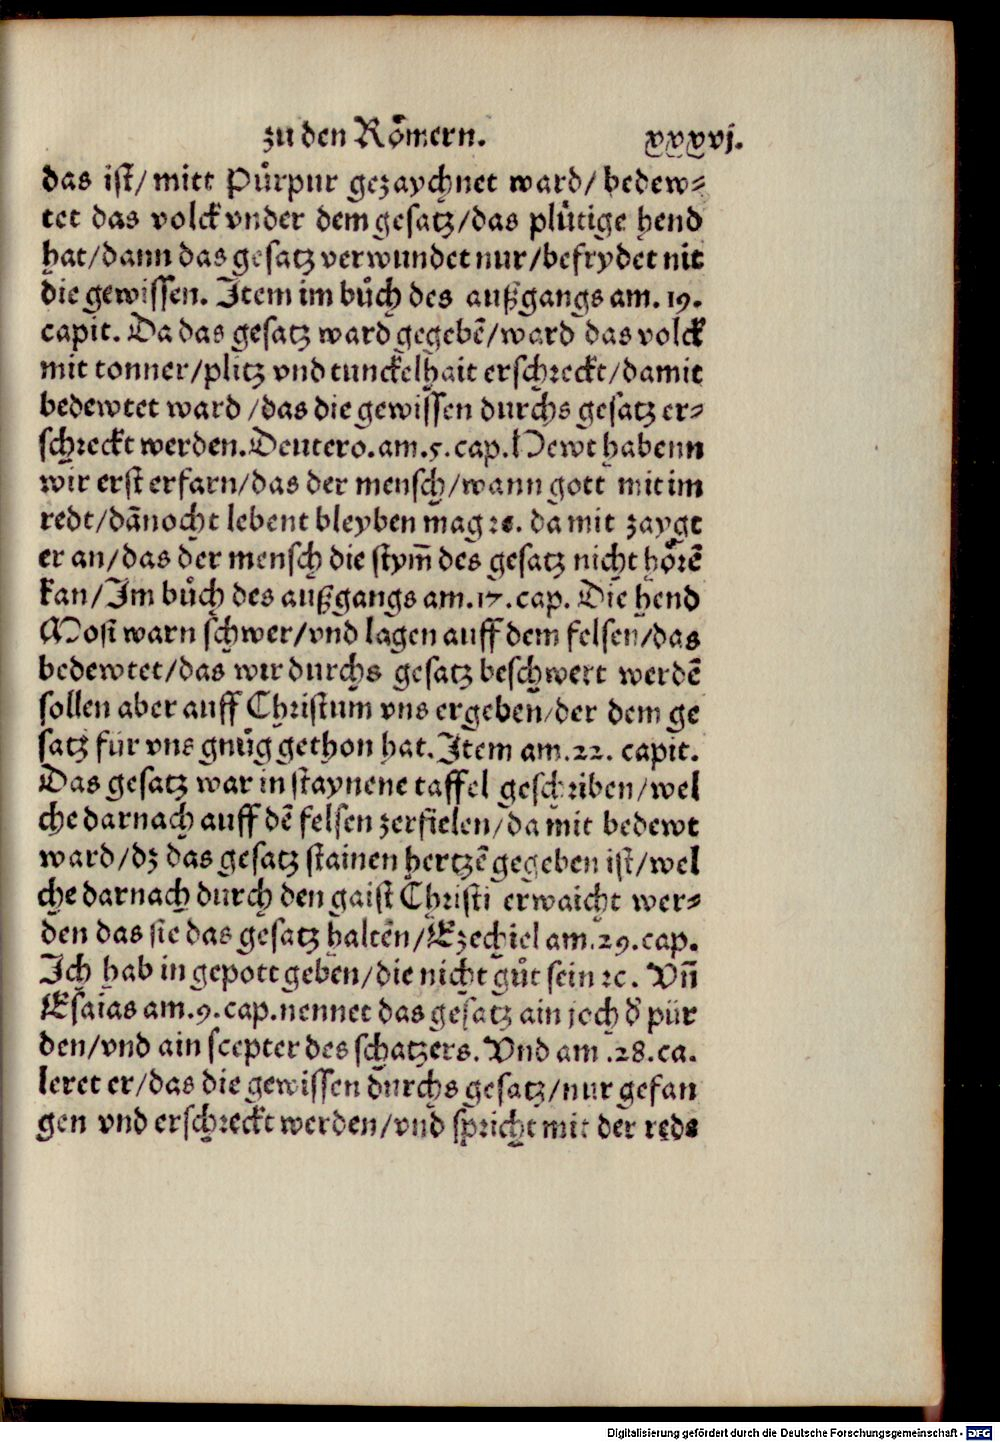 zu den Roͤmern. xxxvj.
das ist/ mitt Puͤrpur gezaychnet ward/ bedew⸗
tet das volck vnder dem gesatz/das pluͤtige hend
hat/dann das gesatz verwundet nur/befrydet nit
die gewissen. Item im buͦch des außgangs am. 19.
capit. Da das gesatz ward gegebẽ/ward das volck
mit tonner/plitz vnd tunckelhait erschreckt/damit
bedewtet ward /das die gewissen durchs gesatz er⸗
schreckt werden. Deutero. am. 5. cap. Hewt habenn
wir erst erfarn/das der mensch/wann gott mit im
redt/dãnocht lebent bleyben mag ꝛc. da mit zaygt
er an/das der mensch die stym̃ des gesatz nicht hoͤrẽ
kan/Im buͦch des außgangs am. 17. cap. Die hend
Mosi warn schwer/vnd lagen auff dem felsen/das
bedewtet/das wir durchs gesatz beschwert werdẽ
sollen aber auff Christum vns ergeben/der dem ge
satz fuͤr vns gnuͦg gethon hat. Item am. 22. capit.
Das gesatz war in staynene taffel geschriben/wel
che darnach auff dẽ felsen zerfielen/da mit bedewt
ward/dz das gesatz stainen hertzẽ gegeben ist/wel
che darnach durch den gaist Christi erwaicht wer⸗
den das sie das gesatz haltẽn/Ezechiel am. 29. cap.
Ich hab in gepott geben/die nicht guͦt sein ꝛc. Vñ
Esaias am. 9. cap. nennet das gesatz ain joch đ pür
den/vnd ain scepter des schatzers. Vnd am . 28. ca.
leret er/das die gewissen durchs gesatz/nur gefan
gen vnd erschreckt werden/vnd spricht mit der reds
Digitalisierung gefördert durch die Deutsche Forschungsgemeinschaft - DFG